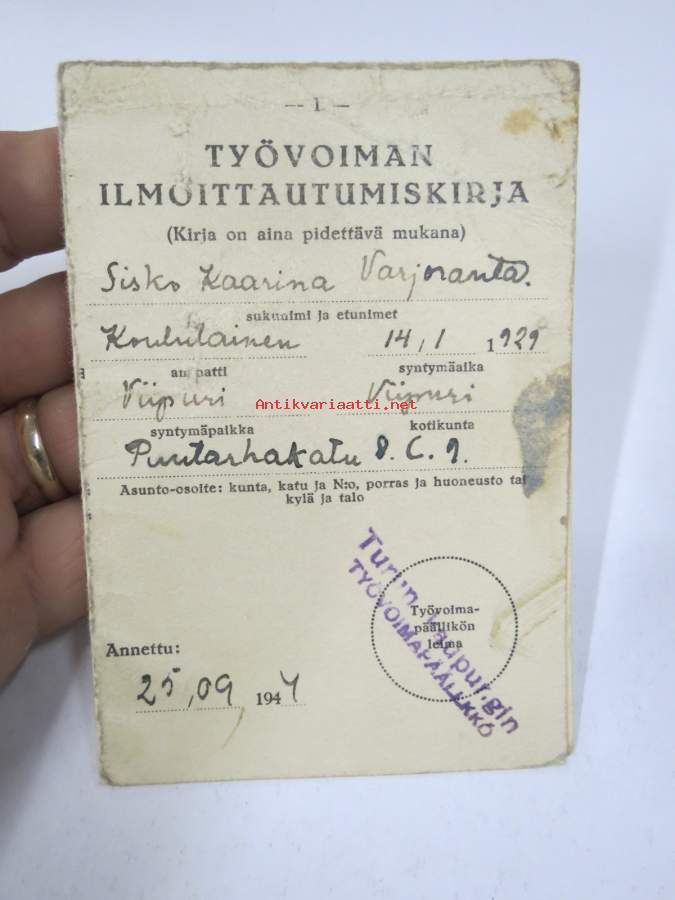 — 1 —
TYÖVOIMAN
ILMOITTAUTUMISKIRJA
(Kirja on aina pidettävä mukana)
Sisko Kaarina Varjoranta.
sukunimi ja etunimet
Koululainen 14,1 1929
ammatti syntymäaika
Viipuri Viipuri
Antikvariaatti.net
syntymäpaikka kotikunta
Puutarhakatu 8. C. 9.
Asunto-osoite: kunta, katu ja N:o, porras ja huoneusto tai
kylä ja talo
Turun kaupungin
TYÖVOIMAPÄÄLLIKKÖ
Työvoima-
päällikön
leima
Annettu:
25,09 1944